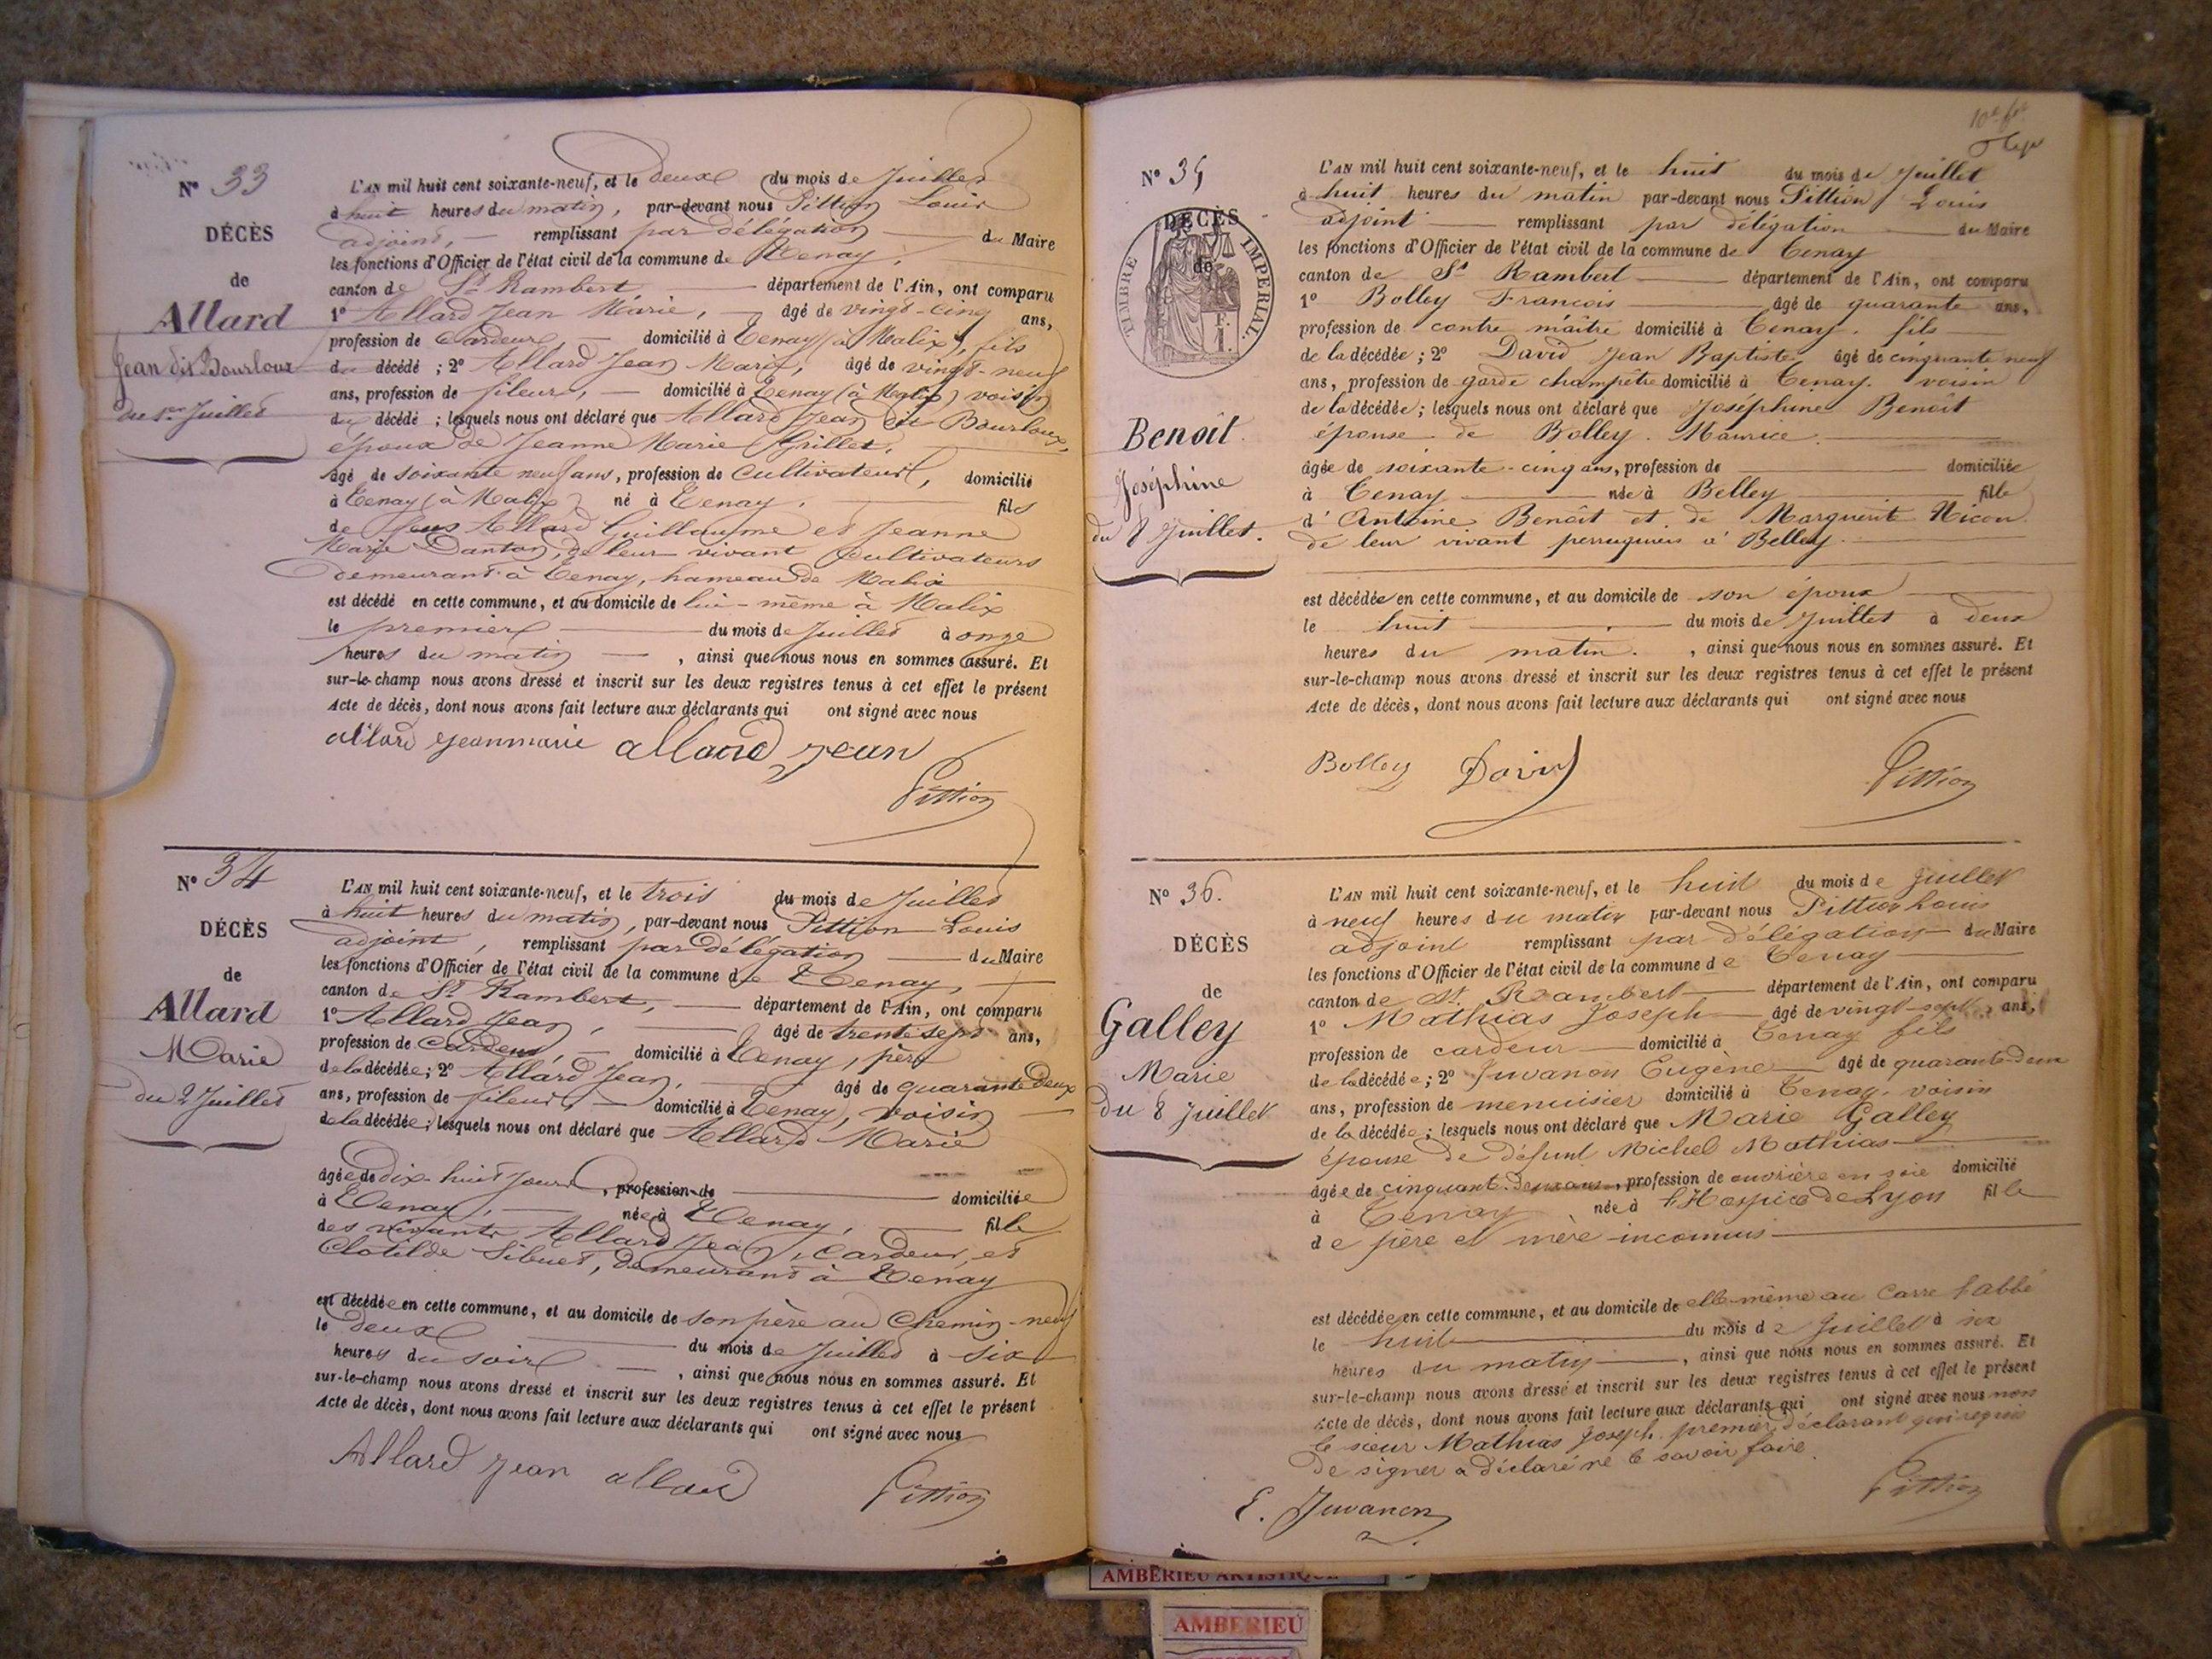 N° 33
DÉCÈS
de
Allard
Jean dit Bourloux
du 1er Juillet
L'AN mil huit cent soixante-neuf, et le deux du mois de Juillet
à huit heures du matin, par-devant nous Pittion Louis
adjoint, remplissant par délégation du Maire
les fonctions d'Officier de l'état civil de la commune de Tenay,
canton de St Rambert département de l'Ain, ont comparu
1° Allard Jean Marie, âgé de vingt-cinq ans,
profession de Cardeur, domicilié à Tenay (à Malix), fils
du décédé ; 2° Allard Jean Marie, âgé de vingt-neuf
ans, profession de fileur, domicilié à Tenay (à Malix) voisin
du décédé ; lesquels nous ont déclaré que Allard Jean dit Bourloux,
époux de Jeanne Marie Grillet,
âgé de soixante neuf ans, profession de Cultivateur, domicilié
à Tenay (à Malix) né à Tenay, fils
de feus Allard Guillaume et Jeanne
Marie Danton, de leur vivant Cultivateurs
demeurant à Tenay, hameau de Malix
est décédé en cette commune, et au domicile de lui-même à Malix
le premier du mois de Juillet à onze
heures du matin, ainsi que nous nous en sommes assuré. Et
sur-le-champ nous avons dressé et inscrit sur les deux registres tenus à cet effet le présent
Acte de décès, dont nous avons fait lecture aux déclarants qui ont signé avec nous
allard jeanmarie allard jean
Pittion
N° 34
DÉCÈS
de
Allard
Marie
du 2 Juillet
L'AN mil huit cent soixante-neuf, et le trois du mois de Juillet
à huit heures du matin, par-devant nous Pittion Louis
adjoint, remplissant par délégation du Maire
les fonctions d'Officier de l'état civil de la commune de Tenay,
canton de St Rambert, département de l'Ain, ont comparu
1° Allard Jean, âgé de trente sept ans,
profession de Cardeur, domicilié à Tenay, père
de la décédée ; 2° Allard Jean, âgé de quarante deux
ans, profession de fileur, domicilié à Tenay, voisin
de la décédée ; lesquels nous ont déclaré que Allard Marie
âgée de dix-huit jours, profession de domiciliée
à Tenay, née à Tenay, fille
des vivants Allard Jean, Cardeur, et
Clotilde Sibuet, demeurant à Tenay
est décédée en cette commune, et au domicile de son père au Chemin-neuf
le deux du mois de Juillet à six
heures du soir, ainsi que nous nous en sommes assuré. Et
sur-le-champ nous avons dressé et inscrit sur les deux registres tenus à cet effet le présent
Acte de décès, dont nous avons fait lecture aux déclarants qui ont signé avec nous
Allard Jean allard
Pittion
N° 35
DÉCÈS
de
TIMBRE IMPERIAL
Benoît
Joséphine
du 8 Juillet.
L'AN mil huit cent soixante-neuf, et le huit du mois de Juillet
à huit heures du matin par-devant nous Pittion Louis
adjoint remplissant par délégation du Maire
les fonctions d'Officier de l'état civil de la commune de Tenay
canton de St Rambert département de l'Ain, ont comparu
1° Bolley Francois âgé de quarante ans,
profession de contre maître domicilié à Tenay. fils
de la décédée ; 2° David Jean Baptiste âgé de cinquante neuf
ans, profession de garde champêtre domicilié à Tenay. voisin
de la décédée ; lesquels nous ont déclaré que Joséphine Benoît
épouse de Bolley Maurice.
âgée de soixante-cinq ans, profession de domiciliée
à Tenay née à Belley fille
d'Antoine Benoît et de Marguerite Nicon
de leur vivant perruquiers à Belley.
est décédée en cette commune, et au domicile de son époux
le huit du mois de Juillet à deux
heures du matin. , ainsi que nous nous en sommes assuré. Et
sur-le-champ nous avons dressé et inscrit sur les deux registres tenus à cet effet le présent
Acte de décès, dont nous avons fait lecture aux déclarants qui ont signé avec nous
Bolley David
Pittion
N° 36.
DÉCÈS
de
Galley
Marie
du 8 Juillet
L'AN mil huit cent soixante-neuf, et le huit du mois de Juillet
à neuf heures du matin par-devant nous Pittion Louis
adjoint remplissant par délégation du Maire
les fonctions d'Officier de l'état civil de la commune de Tenay
canton de St. Rambert département de l'Ain, ont comparu
1° Mathias Joseph âgé de vingt-sept ans,
profession de cardeur domicilié à Tenay fils
de la décédée ; 2° Juvanon Eugène âgé de quarante-deux
ans, profession de menuisier domicilié à Tenay, voisin
de la décédée ; lesquels nous ont déclaré que Marie Galley
épouse de défunt Michel Mathias
âgée de cinquante-deux ans, profession de ouvrière en soie domicilié
à Tenay née à l'Hospice de Lyon fille
de père et mère inconnus
est décédée en cette commune, et au domicile de elle-même au Carre l'abbé
le huit du mois de Juillet à six
heures du matin, ainsi que nous nous en sommes assuré. Et
sur-le-champ nous avons dressé et inscrit sur les deux registres tenus à cet effet le présent
Acte de décès, dont nous avons fait lecture aux déclarants qui ont signé avec nous non
le sieur Mathias Joseph premier déclarant qui requis
de signer a déclaré ne le savoir faire.
E. Juvanon
Pittion
AMBERIEU ARTISTIQUE
AMBERIEU